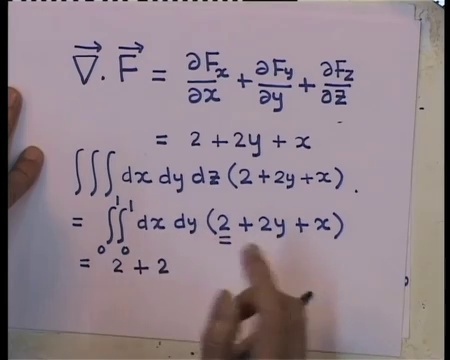 ∇⃗ . F⃗ = ∂Fx/∂x + ∂Fy/∂y + ∂Fz/∂z
= 2 + 2y + x
∫∫∫ dx dy dz (2 + 2y + x) .
= ∫₀¹ ∫₀¹ dx dy (2 + 2y + x)
= 2 + 2